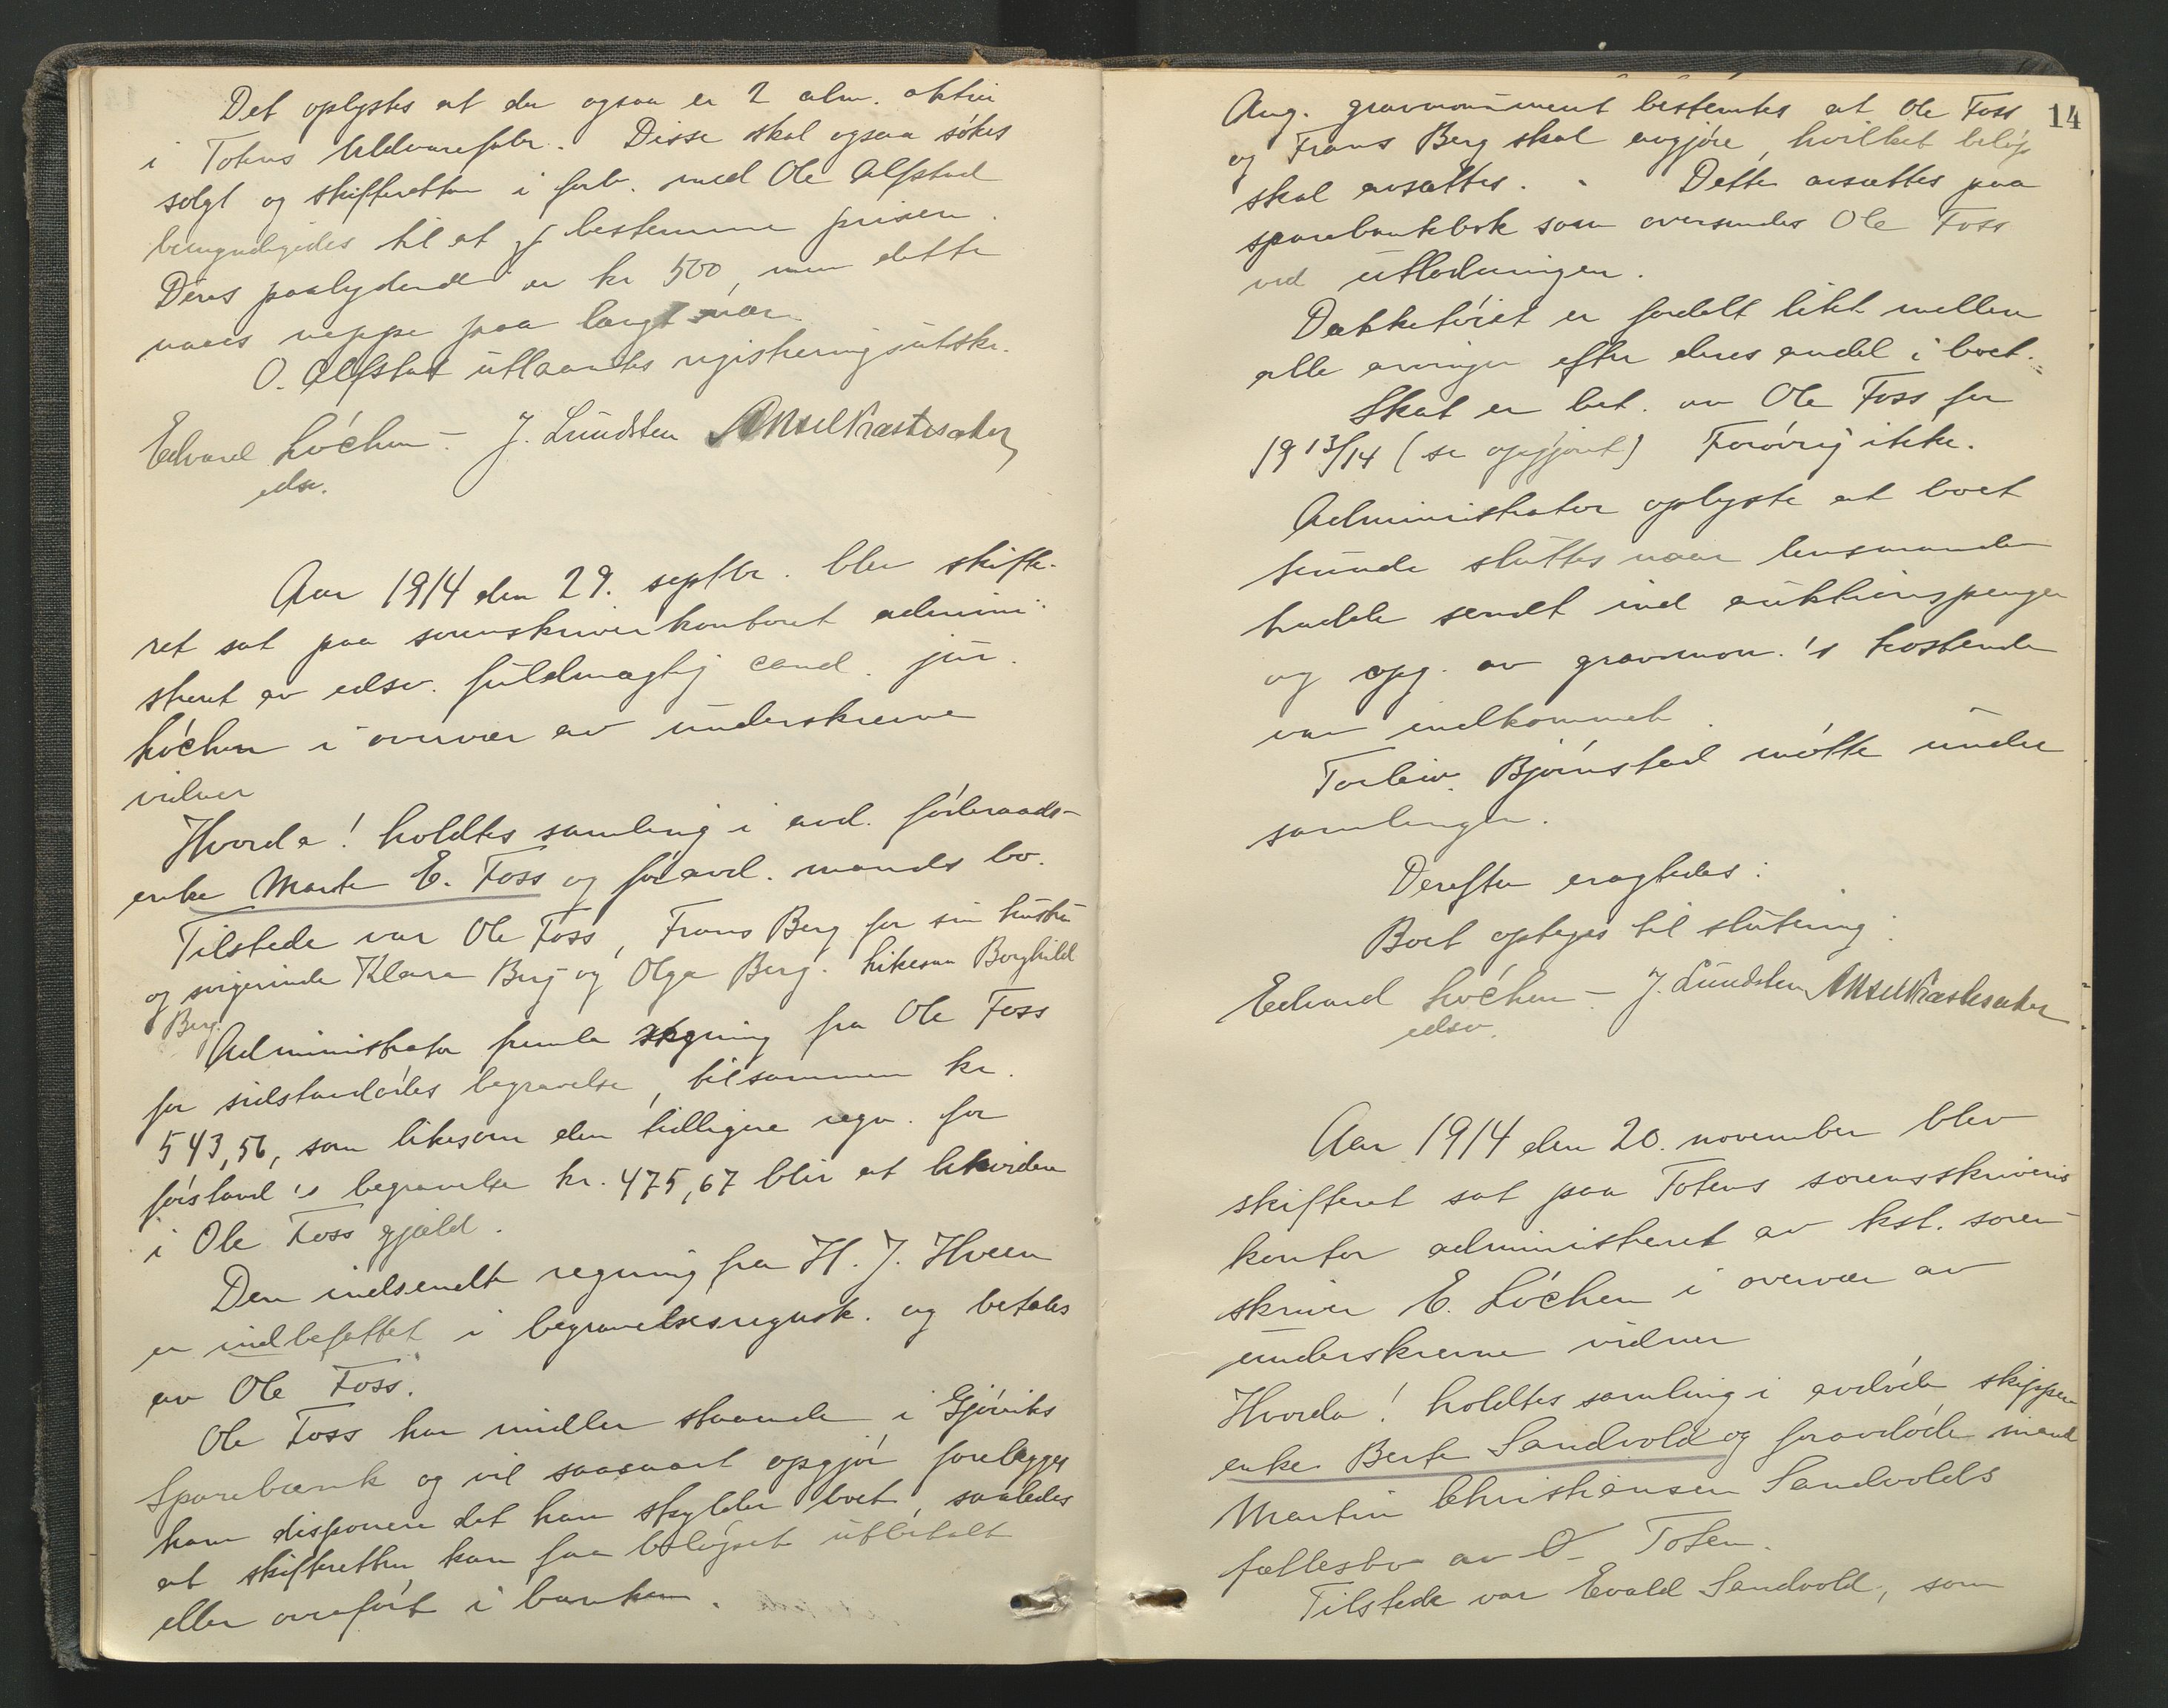 Det oplystes at der ogsaa er 2 alm. aktier
i Totens Uldvarefabr. Disse skal ogsaa søkes
solgt og skifteretten i forb. med Ole Alfstad
bemyndigedes til at bestemme prisen.
Deres paalydende er kr 500, men dette
naaes neppe paa langt nær.
O. Alfstad utlaantes registreringsutskr.
Edvard Løchen - J. Lundsten Aksel Præstesæter
edsv.
Aar 1914 den 29. septbr. blev skifte-
ret sat paa sorenskriverkontoret admini-
streret av edsv. fuldmægtig cand. jur.
Løchen i overvær av underskrevne
vidner
Hvorda! holdtes samling i avd. føderaads-
enke Marte E. Foss og føravd. mands bo.
Tilstede var Ole Foss, Frans Berg for sin hustru
og svigerinde Klara Berg og Olga Berg. Likesaa Borghild
Berg.
Administrator fremla regning fra Ole Foss
for sidstavdødes begravelse, tilsammen kr.
543,56, som likesom den tidligere regn. for
førstavd's begravelse kr. 475,67 blir at likvidere
i Ole Foss gjæld.
Den indsendte regning fra H. J. Hveem
er indbefattet i begravelsesregnsk. og betales
av Ole Foss.
Ole Foss har midler staaende i Gjøviks
Sparebank og vil saasnart opgjør forelægges
ham disponere det han skylder boet, saaledes
at skifteretten kan faa beløpet utbetalt
eller overført i banken.
14
Ang. gravmonument bestemtes at Ole Foss
og Frans Berg skal avgjøre, hvilket beløp
skal avsættes. - Dette avsættes paa
sparebankbok som oversendes Ole Foss
ved utlodningen.
Dækketøiet er fordelt likt mellem
alle arvinger efter deres andel i boet.
Skat er bet. av Ole Foss for
1913/14 (se opgjøret) Forøvrig ikke.
Administrator oplyste at boet
kunde sluttes naar lensmanden
hadde sendt ind auktionspenger
og opg. av gravmon.'s kostende
var indkommet.
Torleiv Bjørnstad møtte under
samlingen.
Derefter eragtedes:
Boet optages til slutning.
Edvard Løchen - J. Lundsten Aksel Præstesæter
edsv.
Aar 1914 den 20. november blev
skifteret sat paa Totens sorenskriver-
kontor administreret av kst. soren-
skriver E. Løchen i overvær av
underskrevne vidner
Hvorda! holdtes samling i avdøde skipper
enke Berte Sandvold og foravdøde mand
Martin Christiansen Sandvolds
fællesbo av Ø. Toten.
Tilstede var Evald Sandvold, som